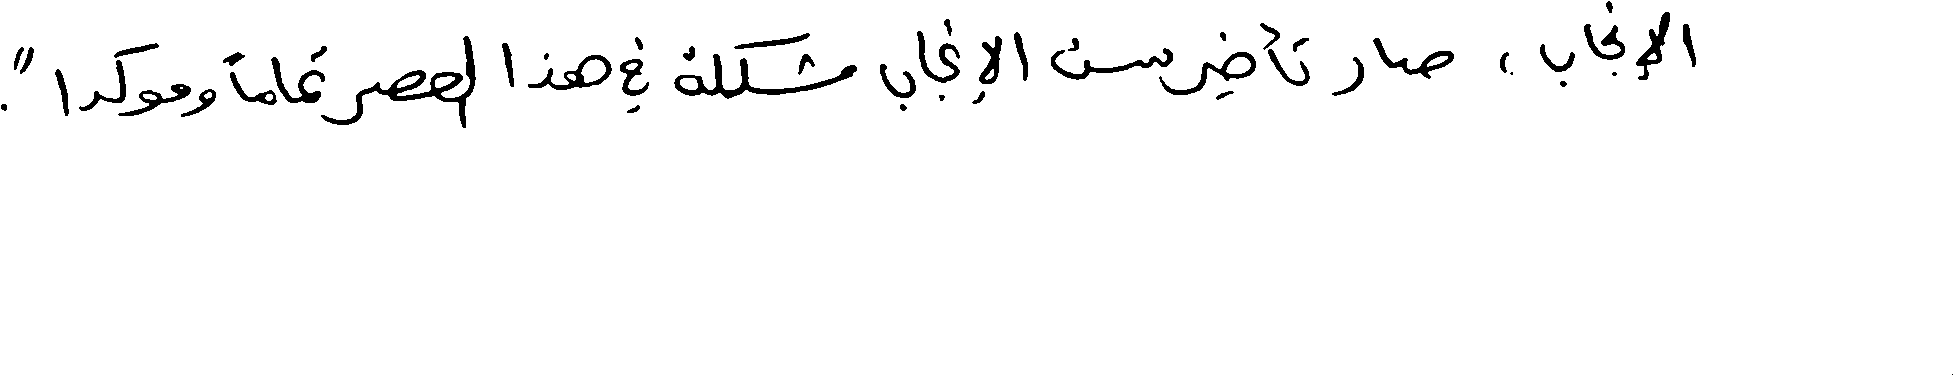 الإنجاب، صار تأخير سن الإنجاب مشكلة في هذا العصر تماماً وموكدا".